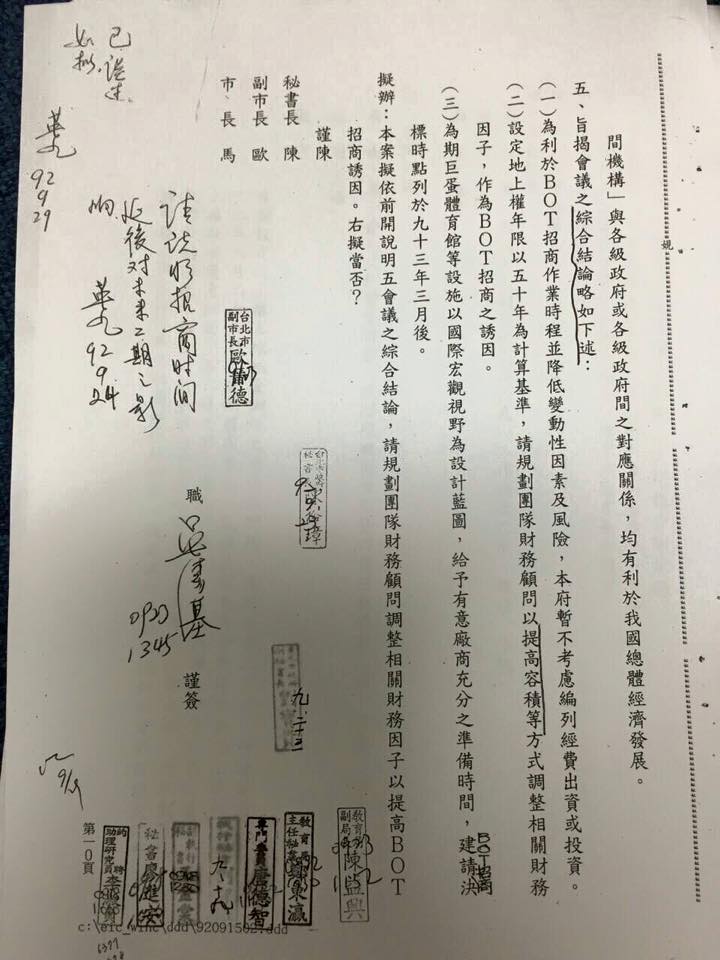 間機構」與各級政府或各級政府間之對應關係，均有利於我國總體經濟發展。
五、旨揭會議之綜合結論略如下述：
（一）為利於BOT招商作業時程並降低變動性因素及風險，本府暫不考慮編列經費出資或投資。
（二）設定地上權年限以五十年為計算基準，請規劃團隊財務顧問以提高容積等方式調整相關財務
因子，作為BOT招商之誘因。
（三）為期巨蛋體育館等設施以國際宏觀視野為設計藍圖，給予有意廠商充分之準備時間，建請決
BOT招商
標時點列於九十三年三月後。
擬辦：本案擬依前開說明五會議之綜合結論，請規劃團隊財務顧問調整相關財務因子以提高BOT
招商誘因。右擬當否？
謹陳
秘書長 陳
副市長 歐
市長 馬
台北市
副市長 歐晉德
請說明招商时间
延後对未來二期之影
响
英九 92
9
24
已說述
如擬
英九
92
9
29
職 吳清基 謹簽
0923
1345
九、二三
9/19
教育局
副局長 陳益興
專門委員 詹德智
第一0頁
c:\eic_winc\ddd\92091502.ddd